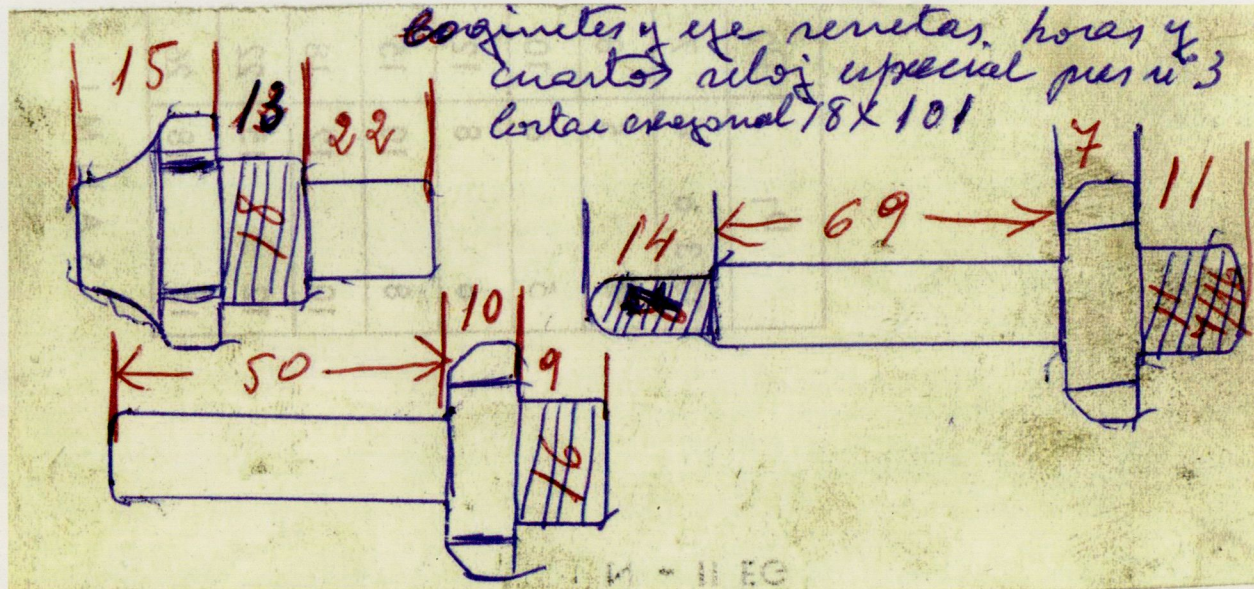 coginetes y eje renretas horas y
cuartos reloj especial pes nº 3
cortar exagonal 18 X 101
15
13
22
18
7
11
14
69
14
10
50
9
16